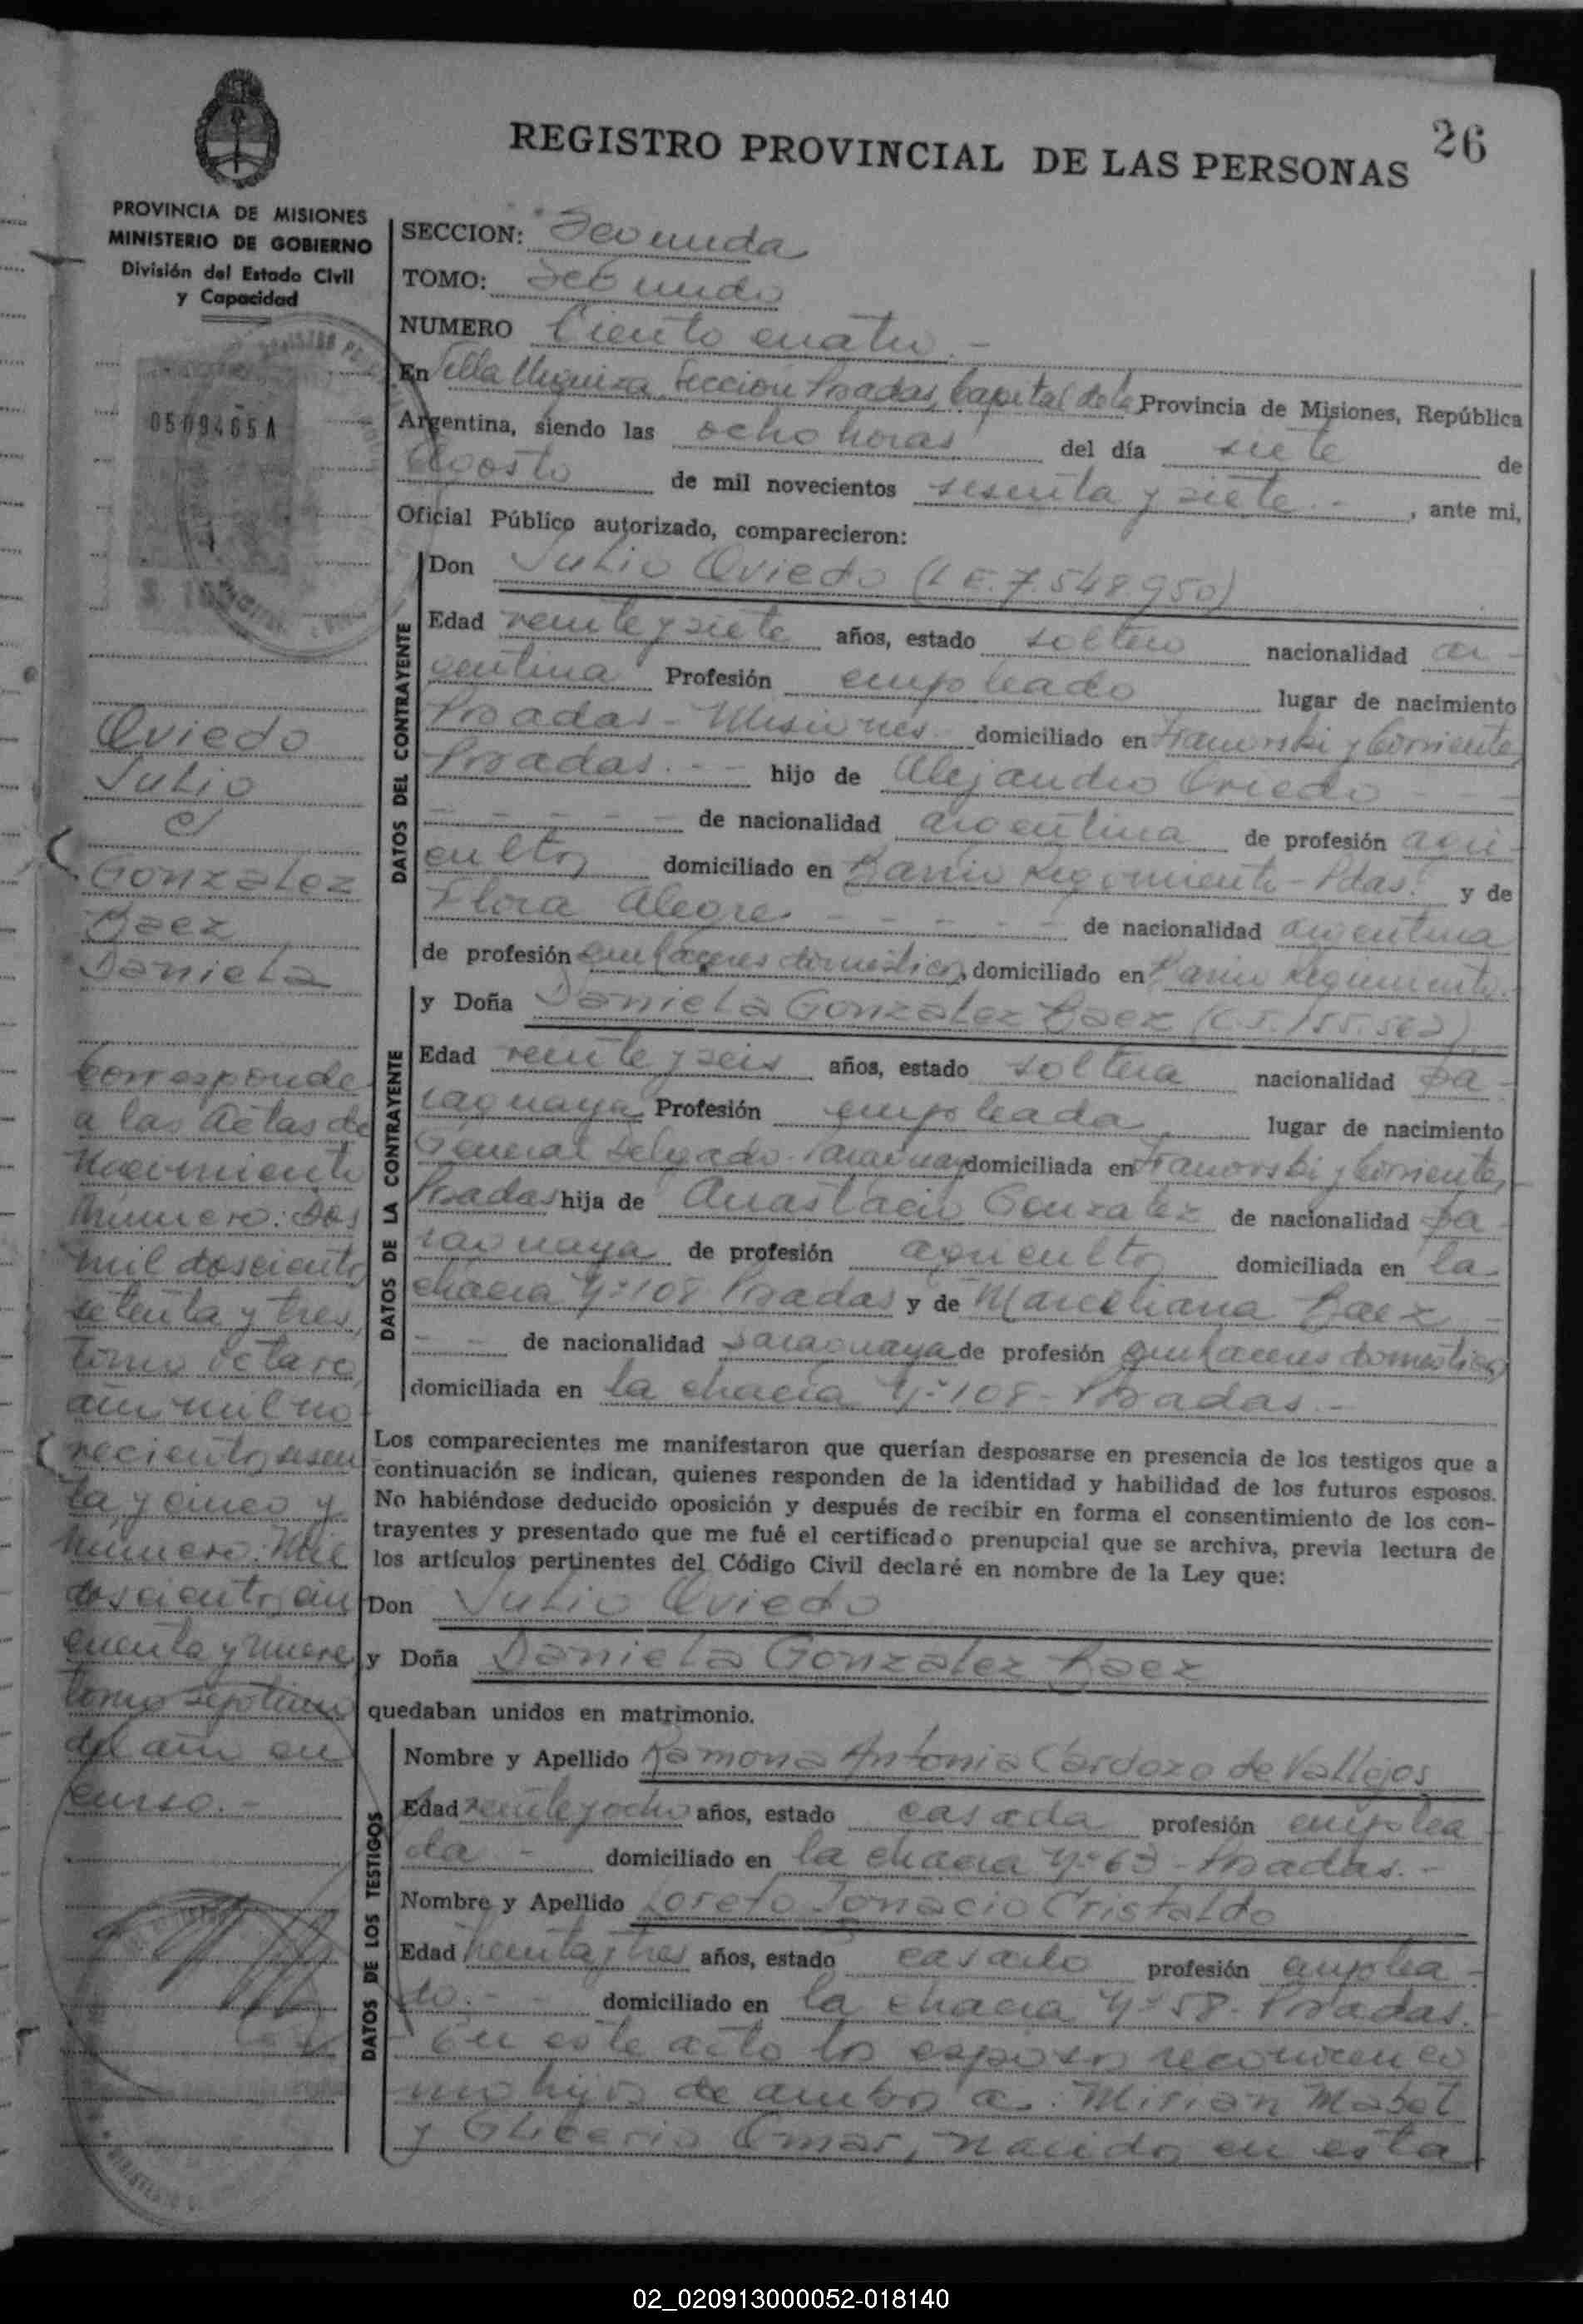 26
REGISTRO PROVINCIAL DE LAS PERSONAS
PROVINCIA DE MISIONES
MINISTERIO DE GOBIERNO
División del Estado Civil
y Capacidad
0509465A
Oviedo
Julio
c/
Gonzalez
Baez
Daniela
Corresponde
a las Actas de
Nacimiento
Número: Dos
mil doscientos
setenta y tres,
tomo octavo,
año mil no
vecientos sesen
ta y cinco y
número: Mil
doscientos cin
cuenta y nueve
tomo septimo
del año en
curso.-
SECCION: Segunda
TOMO: Segundo
NUMERO Ciento cuatro.-
En Villa Urquiza, Sección Posadas, Capital de la Provincia de Misiones, República
Argentina, siendo las ocho horas del día siete de
Agosto de mil novecientos sesenta y siete.-, ante mi,
Oficial Público autorizado, comparecieron:
DATOS DEL CONTRAYENTE
Don Julio Oviedo (L E. 7.548.950)
Edad veinte y siete años, estado soltero nacionalidad ar-
gentina Profesión empleado lugar de nacimiento
Posadas - Misiones domiciliado en y Corrientes
Posadas.-- hijo de Alejandro Oviedo - - -
- - - - - de nacionalidad argentina de profesión agri-
cultor domiciliado en Barrio Regimiento - Pdas. y de
Flora Alegre - - - - - de nacionalidad argentina
de profesión quehaceres domésticos, domiciliado en Barrio Regimiento.
DATOS DE LA CONTRAYENTE
y Doña Daniela Gonzalez Baez (C.I. 155.562)
Edad veinte y seis años, estado soltera nacionalidad pa-
raguaya Profesión empleada lugar de nacimiento
General Delgado - Paraguay domiciliada en y Corrientes,
Posadas hija de Anastacio Gonzalez de nacionalidad pa-
raguaya de profesión agricultor domiciliada en la
chacra Nº 108 Posadas y de Marceliana Baez -
- - de nacionalidad paraguaya de profesión quehaceres domésticos
domiciliada en la chacra Nº 108 - Posadas.-
Los comparecientes me manifestaron que querían desposarse en presencia de los testigos que a
continuación se indican, quienes responden de la identidad y habilidad de los futuros esposos.
No habiéndose deducido oposición y después de recibir en forma el consentimiento de los con-
trayentes y presentado que me fué el certificado prenupcial que se archiva, previa lectura de
los artículos pertinentes del Código Civil declaré en nombre de la Ley que:
Don Julio Oviedo
y Doña Daniela Gonzalez Baez
quedaban unidos en matrimonio.
DATOS DE LOS TESTIGOS
Nombre y Apellido Ramona Antonia Cardozo de Vallejos
Edad veinte y ocho años, estado casada profesión emplea-
da - domiciliado en la chacra Nº 63 - Posadas.-
Nombre y Apellido Loreto Ignacio Cristaldo
Edad treinta y tres años, estado casado profesión emplea-
do.- - domiciliado en la chacra Nº 58 - Posadas.
- En este acto los esposos reconocen co
mo hijos de ambos a: Mirian Mabel
y Glicerio Omar, nacidos en esta
02_020913000052-018140